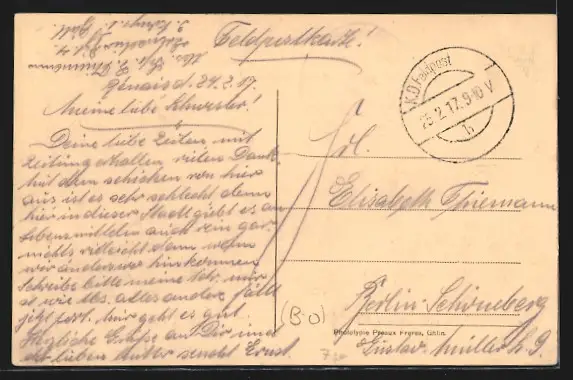 Feldpostkarte!
d. 24.2.17.
Meine liebe Schwester!
Deine lieben Zeilen mit
Zeitung erhalten vielen Dank.
mit dem schicken von hier
aus ist es sehr schlecht denn
hier in dieser Stadt giebt es an
Lebensmitteln auch rein gar
nichts vielleicht dann wenn
wir anderswo hinkommen.
Schreibe bitte meine
alles andere fällt
jetzt fort. Mir geht es gut.
Herzliche Grüße an Dir und
der lieben Mutter sendet Ernst.
K.D. Feldpost
25.2.17.9-10 V
h
Frl.
Elisabeth Thiemann
Berlin-Schöneberg
Gustav-Müllerstr. 9.
(B.O)
Phototypie Preaux Frères, Ghlin.